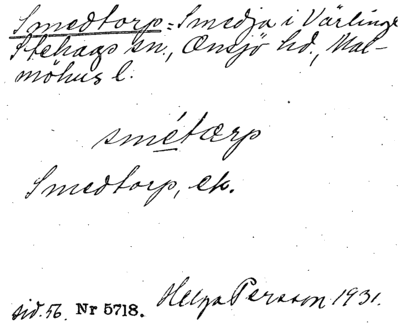 Smedtorp = Smedja i Värlinge
Stehags sn., Onsjö hd., Mal-
möhus l.
smétærp
Smedtorp, ek.
sid. 56. Nr 5718. Helga Persson 1931.